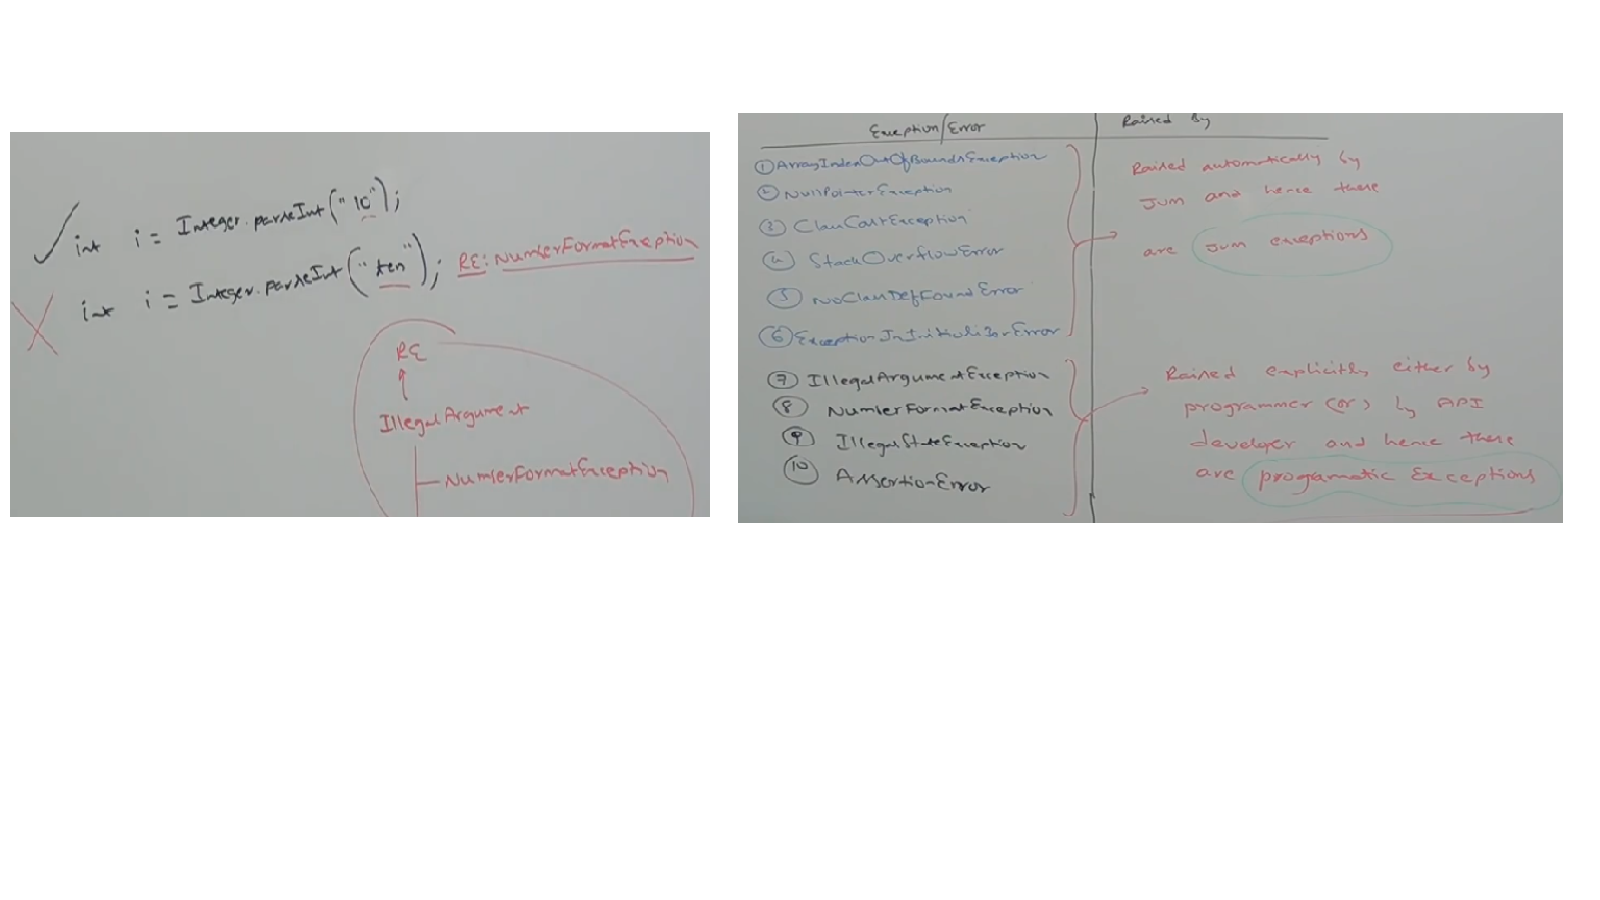 int i = Integer.parseInt("10");
int i = Integer.parseInt("ten"); RE: NumberFormatException
RE
IllegalArgument
NumberFormatException
Exception/Error
Raised by
① ArrayIndexOutOfBoundsException
② NullPointerException
③ ClassCastException
④ StackOverflowError
⑤ NoClassDefFoundError
⑥ ExceptionInInitializerError
Raised automatically by
JVM and hence these
are JVM exceptions
⑦ IllegalArgumentException
⑧ NumberFormatException
⑨ IllegalStateException
⑩ AssertionError
Raised explicitly either by
programmer (or) by API
develper and hence these
are programatic Exceptions